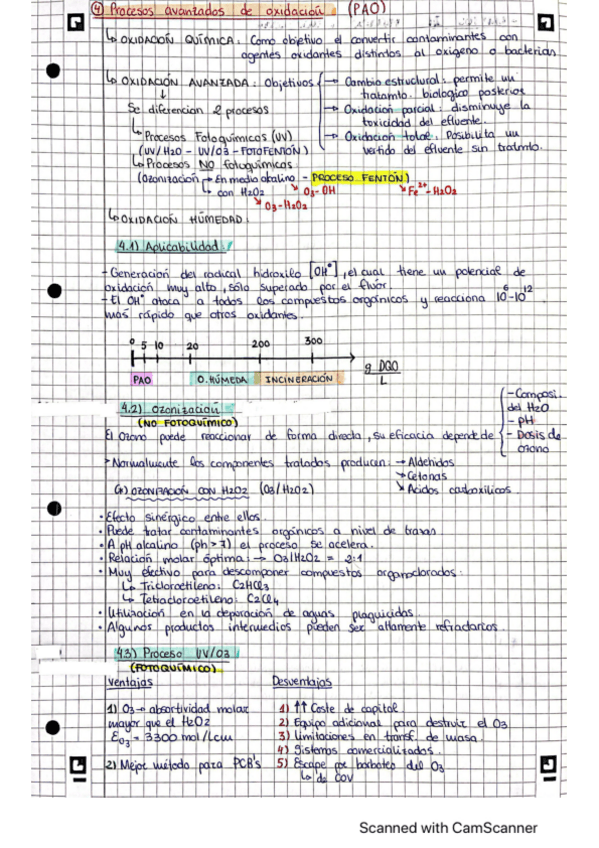 ④ Procesos avanzados de oxidación (PAO)
↳ OXIDACIÓN QUÍMICA: Como objetivo el convertir contaminantes con
agentes oxidantes distintos al oxígeno o bacterias
↳ OXIDACIÓN AVANZADA: Objetivos → Cambio estructural: permite un
tratamto. biologico posterior
↓
Se diferencian 2 procesos → Oxidación parcial: disminuye la
toxicidad del efluente.
↳ Procesos Fotoquímicos (UV) → Oxidación total: Posibilita un
(UV/H2O - UV/O3 - FOTOFENTÓN) vertido del efluente sin tratmto.
↳ Procesos NO fotoquímicos.
(Ozonización → En medio alcalino - PROCESO FENTÓN)
↳ con H2O2 ↘ O3-OH ↘ Fe2+-H2O2
↘ O3-H2O2
↳ OXIDACIÓN HÚMEDA:
4.1) Aplicabilidad
- Generación del radical hidroxilo [OH°], el cual tiene un potencial de
oxidación muy alto, sólo superado por el fluor.
- El OH° ataca a todos los compuestos orgánicos y reacciona 10^6-10^12
más rápido que otros oxidantes.
0 5 10 20 200 300
g DQO
L
PAO O. HÚMEDA INCINERACIÓN
4.2) Ozonización
(NO FOTOQUÍMICO)
El Ozono puede reaccionar de forma directa, su eficacia depende de
- Composi.
del H2O
- pH
- Dosis de
ozono
> Normalmente los componentes tratados producen: → Aldehidos
→ Cetonas
↘ Ácidos carboxílicos.
OZONIZACIÓN CON H2O2 (O3/H2O2)
• Efecto sinérgico entre ellos.
• Puede tratar contaminantes orgánicos a nivel de trazas
• A pH alcalino (ph > 7) el proceso se acelera.
• Relación molar óptima: → O3/H2O2 = 2:1
• Muy efectivo para descomponer compuestos organoclorados:
↳ Tricloroetileno: C2HCl3
↳ Tetracloroetileno: C2Cl4
• Utilización en la depuración de aguas plaguicidas.
• Algunos productos intermedios pueden ser altamente refractarios.
4.3) Proceso UV/O3
(FOTOQUÍMICO)
Ventajas Desventajas
1) O3 → absortividad molar
mayor que el H2O2
ε O3 = 3300 mol/Lcm
2) Mejor método para PCB's
1) ↑↑ Coste de capital
2) Equipo adicional para destruir el O3
3) Limitaciones en transf. de masa.
4) Sistemas comercializados.
5) Escape por borboteo del O3
↳ de COV
Scanned with CamScanner